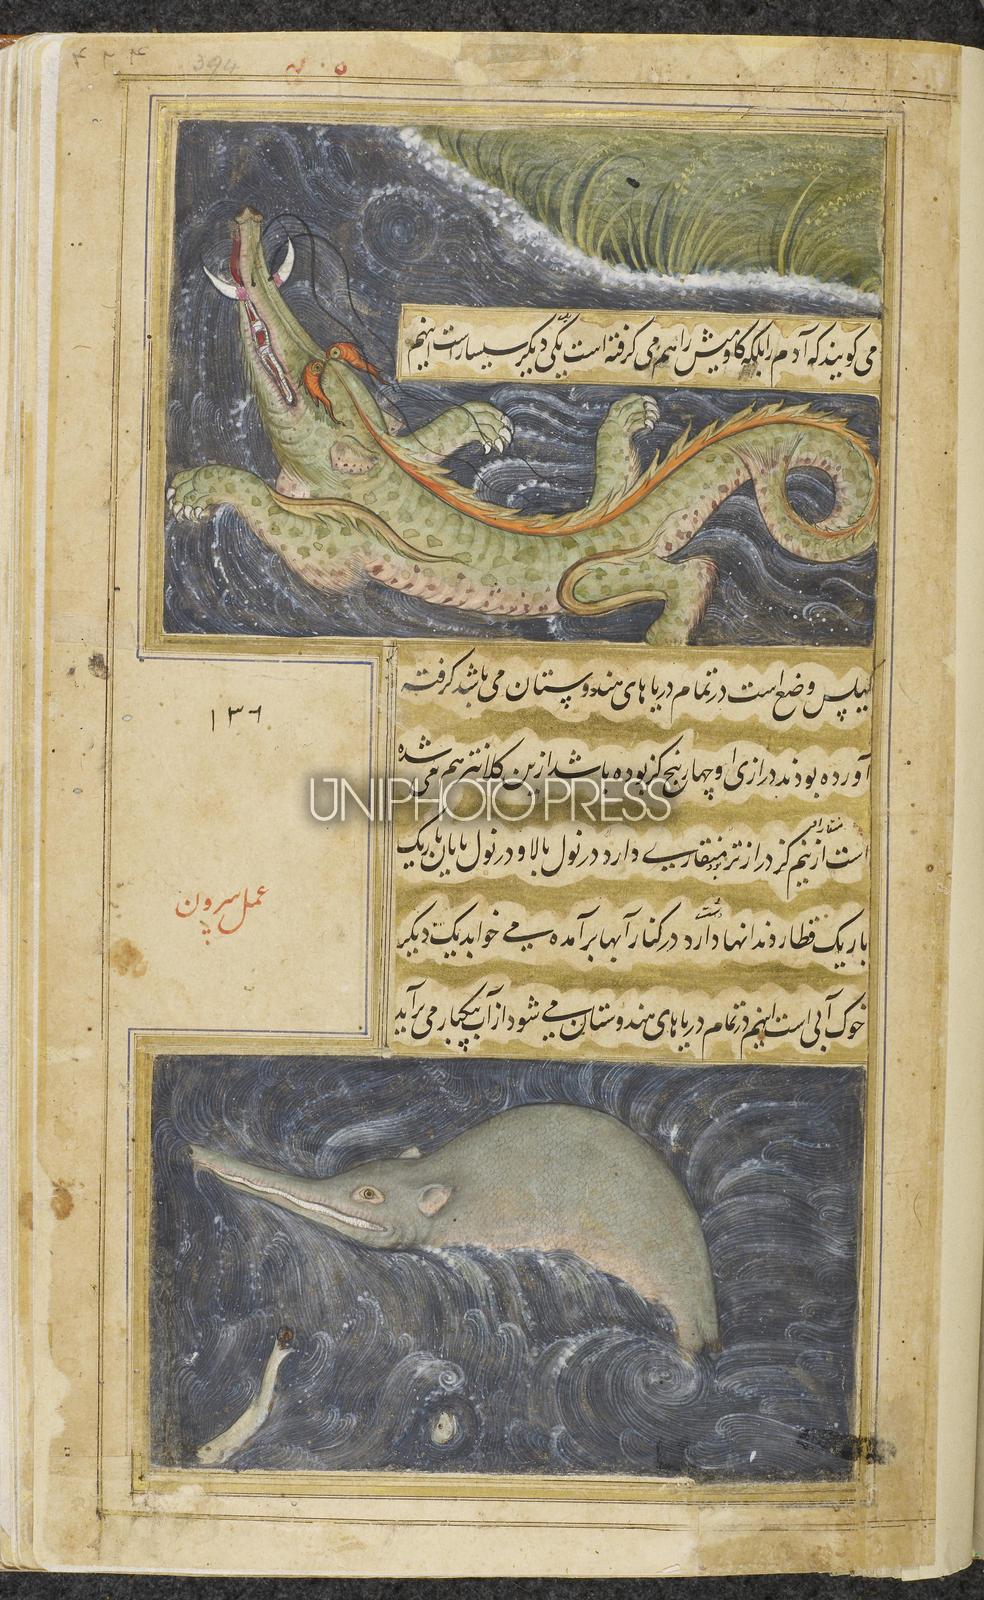 ۴۲۴
394
می گویند که آدم را بلکه گاومیش را هم می گرفته است یکی دیگر سیسار است اینهم
وضع است در تمام دریا های هندوستان می باشد گرفته
آورده بودند درازی او چهار پنج گز بوده باشد ازین کلانتر هم می شده
است از نیم گز درازتر منقاری دارد در نول بالا و در نول پایان باریک
باریک قطار دندانها دارد در کنار آبها برآمده می خوابد یک دیگر
خوک آبی است اینهم در تمام دریا های هندوستان می شود از آب یکبار می برآید
۱۳۶
عمل سرون
UNIPHOTO PRESS